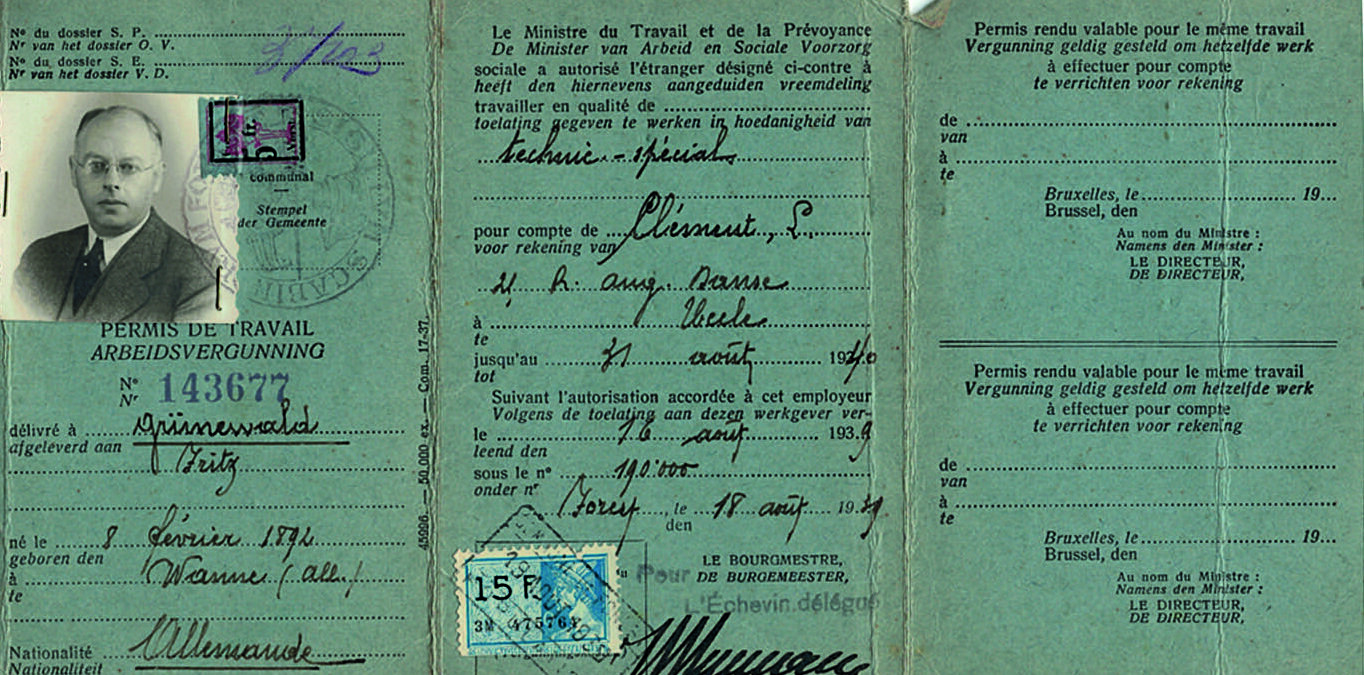 Nº du dossier S. P.
Nr van het dossier O. V.
Nº du dossier S. E.
Nr van het dossier V. D.
communal
Stempel
der Gemeente
PERMIS DE TRAVAIL
ARBEIDSVERGUNNING
Nº
Nr 143677
délivré à Grünewald
afgeleverd aan
Fritz
né le 8 février 1892
geboren den
à Wanne (all.)
te
Nationalité Allemande
Nationaliteit
45996. — 50.000 ex. — Com. 17-37.
Le Ministre du Travail et de la Prévoyance
De Minister van Arbeid en Sociale Voorzorg
sociale a autorisé l'étranger désigné ci-contre à
heeft den hiernevens aangeduiden vreemdeling
travailler en qualité de
toelating gegeven te werken in hoedanigheid van
technic-spécial
pour compte de Clément, L.
voor rekening van
aug. Danse
à Uccle
te
jusqu'au 31 août 1940
tot
Suivant l'autorisation accordée à cet employeur
Volgens de toelating aan dezen werkgever ver-
le 16 août 1939
leend den
sous le nº 190.000
onder nr
Forest, le 18 août 1939
den
LE BOURGMESTRE,
Pour DE BURGEMEESTER,
L'Échevin délégué
15 F.
3M 475764
Permis rendu valable pour le même travail
Vergunning geldig gesteld om hetzelfde werk
à effectuer pour compte
te verrichten voor rekening
de
van
à
te
Bruxelles, le 19...
Brussel, den
Au nom du Ministre :
Namens den Minister :
LE DIRECTEUR,
DE DIRECTEUR,
Permis rendu valable pour le même travail
Vergunning geldig gesteld om hetzelfde werk
à effectuer pour compte
te verrichten voor rekening
de
van
à
te
Bruxelles, le 19...
Brussel, den
Au nom du Ministre :
Namens den Minister :
LE DIRECTEUR,
DE DIRECTEUR,